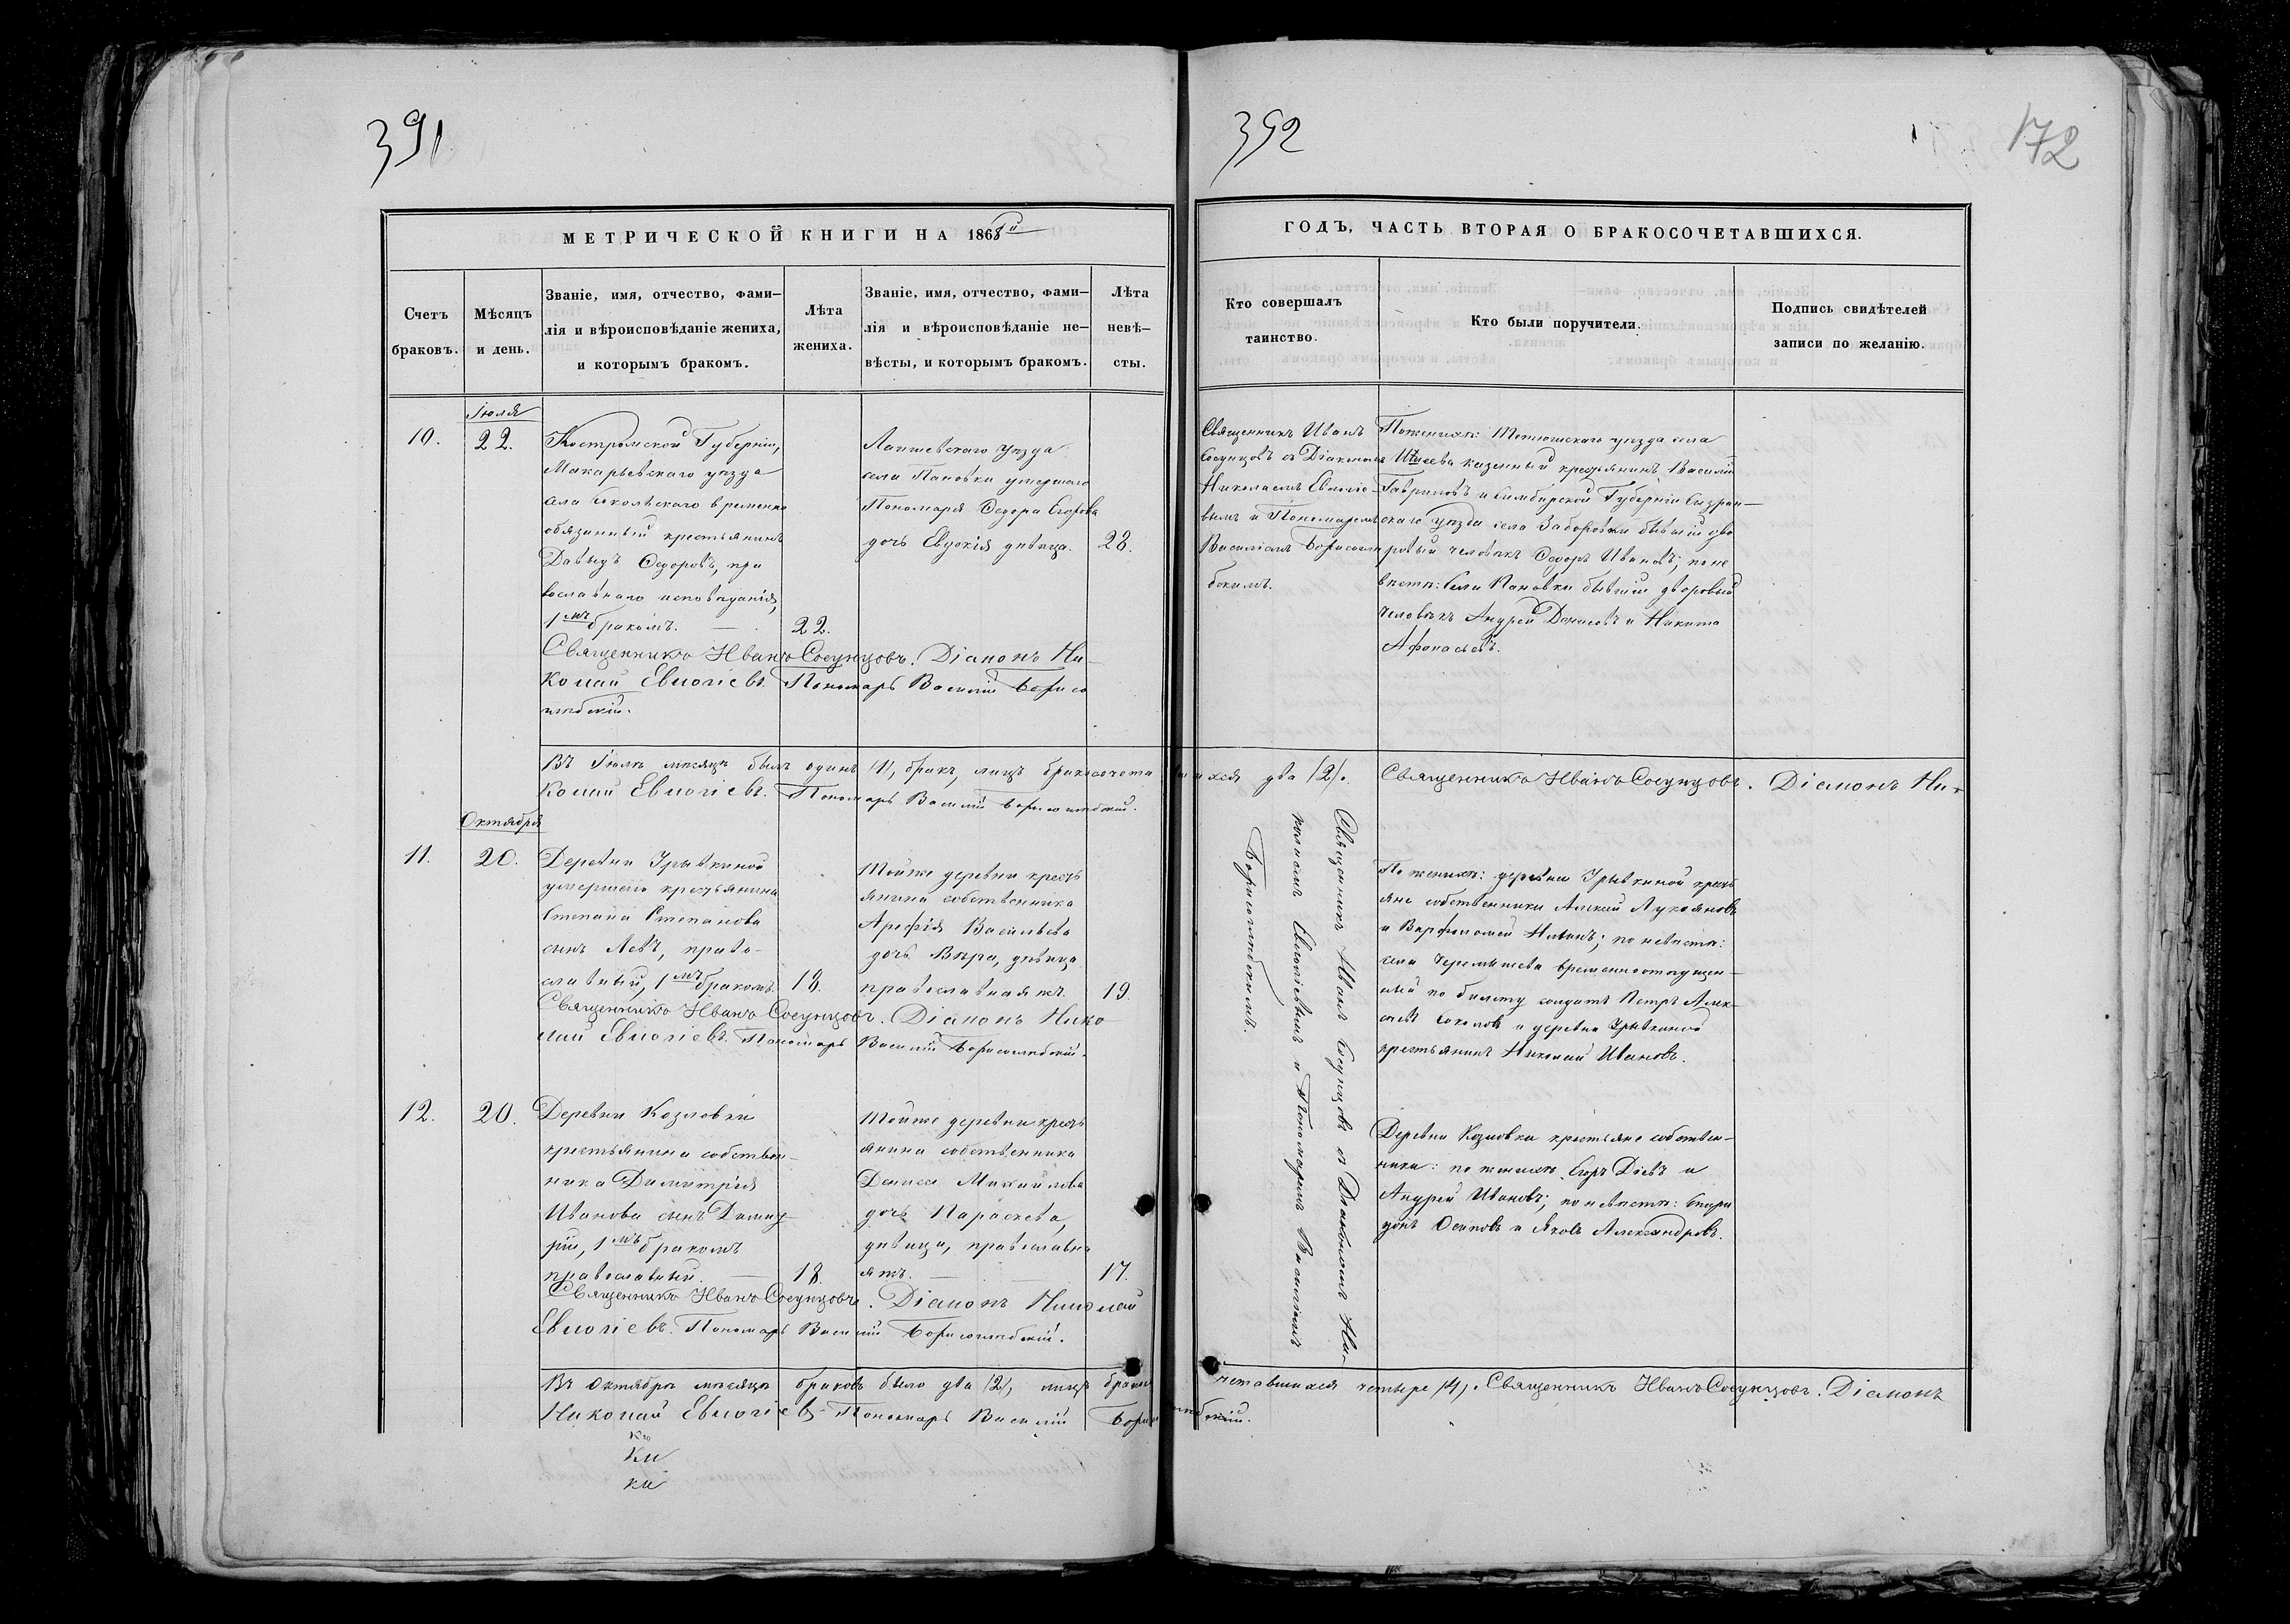 391
392
172
МЕТРИЧЕСКОЙ КНИГИ НА 1868й
ГОДЪ, ЧАСТЬ ВТОРАЯ О БРАКОСОЧЕТАВШИХСЯ.
Счетъ
браковъ.
Мѣсяцъ
и день.
Званіе, имя, отчество, фами-
лія и вѣроисповѣданіе жениха,
и которымъ бракомъ.
Лѣта
жениха.
Званіе, имя, отчество, фами-
лія и вѣроисповѣданіе не-
вѣсты, и которымъ бракомъ.
Лѣта
невѣ-
сты.
Кто совершалъ
таинство.
Кто были поручители.
Подпись свидѣтелей
записи по желанію.
Іюля
10.
22.
Костромской Губерніи,
Макарьевскаго уѣзда
села временно
обязанный крестьянинъ
Давыдъ Ѳедоровъ, пра
вославнаго исповѣданія,
1мъ бракомъ.
22.
Лаишевскаго уѣзда
села Пановки умершаго
Пономаря Ѳедора Егорова
дочь Евдокія дѣвица.
23.
Священникъ Иванъ
Сосунцовъ съ Діакономъ
Николаемъ Евлогіе-
вымъ и Пономаремъ
Василіемъ Борисоглѣ
бскимъ.
По женихѣ: Тетюшскаго уѣзда села
казенный крестьянинъ Василій
Гавриловъ и Симбирской Губерніи Сызран-
скаго уѣзда села Заборовки бывшій дво
ровый человѣкъ Ѳедоръ Ивановъ; по не
вѣстѣ: села Пановки бывшій дворовый
человѣкъ Андрей Денисовъ и Никита
Афанасьевъ.
Священникъ Иванъ Сосунцовъ. Діаконъ Ни-
колай Евлогіевъ. Пономарь Василій Борисо
глѣбскій.
Въ Іюлѣ мѣсяцѣ былъ одинъ /1/, бракъ, лицъ бракосочета вшихся два /2/. Священникъ Иванъ Сосунцовъ. Діаконъ Ни-
колай Евлогіевъ. Пономарь Василій Борисоглѣбскій.
Октября
11.
20.
Деревни Урывкиной
умершаго крестьянина
Степана Степанова
сынъ Левъ, право-
славный, 1мъ бракомъ.
18.
Тойже деревни кресть
янина собственника
Арефія Васильева
дочь Вѣра, дѣвица
православная жъ.
19.
Священникъ Иванъ Сосунцовъ съ Діакономъ Ни-
колаемъ Евлогіевымъ и Пономаремъ Василіемъ
Борисоглѣбскимъ.
По женихѣ: деревни Урывкиной кресть
яне собственники Алексѣй Лукояновъ
и Варфоломей Ильинъ; по невѣстѣ:
села Черемышева временноотпущен-
ный по билету солдатъ Петръ Алек-
сѣевъ Соколовъ и деревни Урывкиной
крестьянинъ Николай Ивановъ.
Священникъ Иванъ Сосунцовъ. Діаконъ Нико
лай Евлогіевъ. Пономарь Василій Борисоглѣбскій.
12.
20.
Деревни Козловки
крестьянина собствен-
ника Димитрія
Иванова сынъ Димит
рій, 1мъ бракомъ
православный.
18.
Тойже деревни кресть
янина собственника
Дениса Михайлова
дочь Параскева,
дѣвица, православна
яжъ.
17.
Деревни Козловки крестьяне собствен-
ники: по женихѣ Егоръ Діевъ и
Андрей Ивановъ; по невѣстѣ: Спири
донъ Осиповъ и Яковъ Александровъ.
Священникъ Иванъ Сосунцовъ. Діаконъ Николай
Евлогіевъ. Пономарь Василій Борисоглѣбскій.
Въ Октябрѣ мѣсяцѣ браковъ было два /2/, лицъ бракосо четавшихся четыре /4/. Священникъ Иванъ Сосунцовъ. Діаконъ
Николай Евлогіевъ Пономарь Василій Борисоглѣбскій.